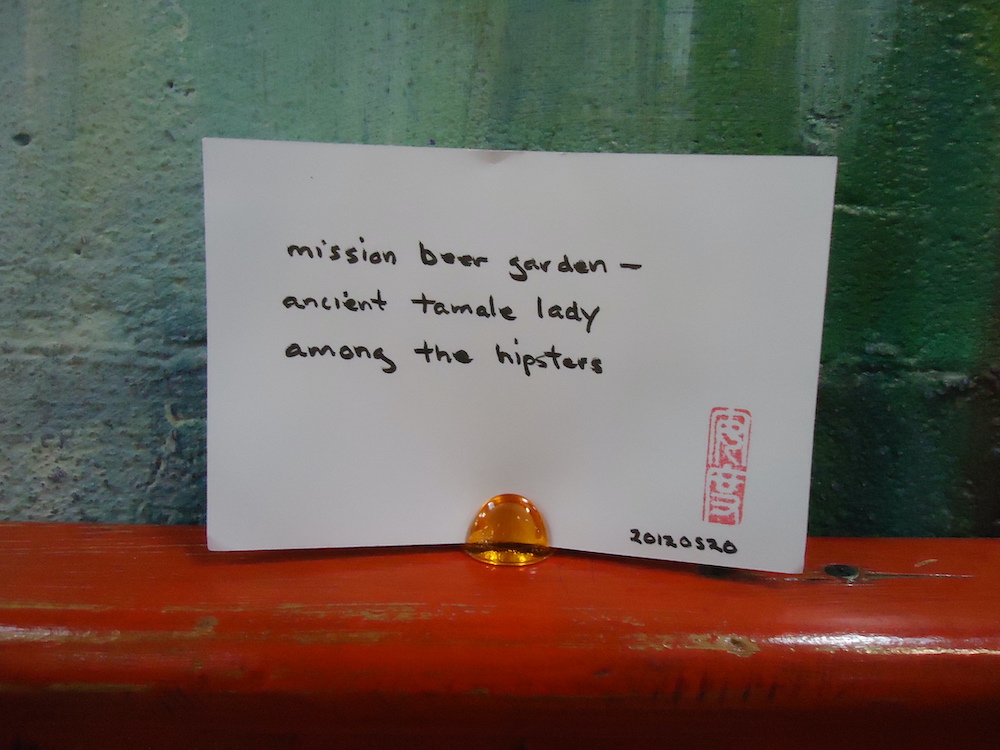 mission beer garden —
ancient tamale lady
among the hipsters
20120520